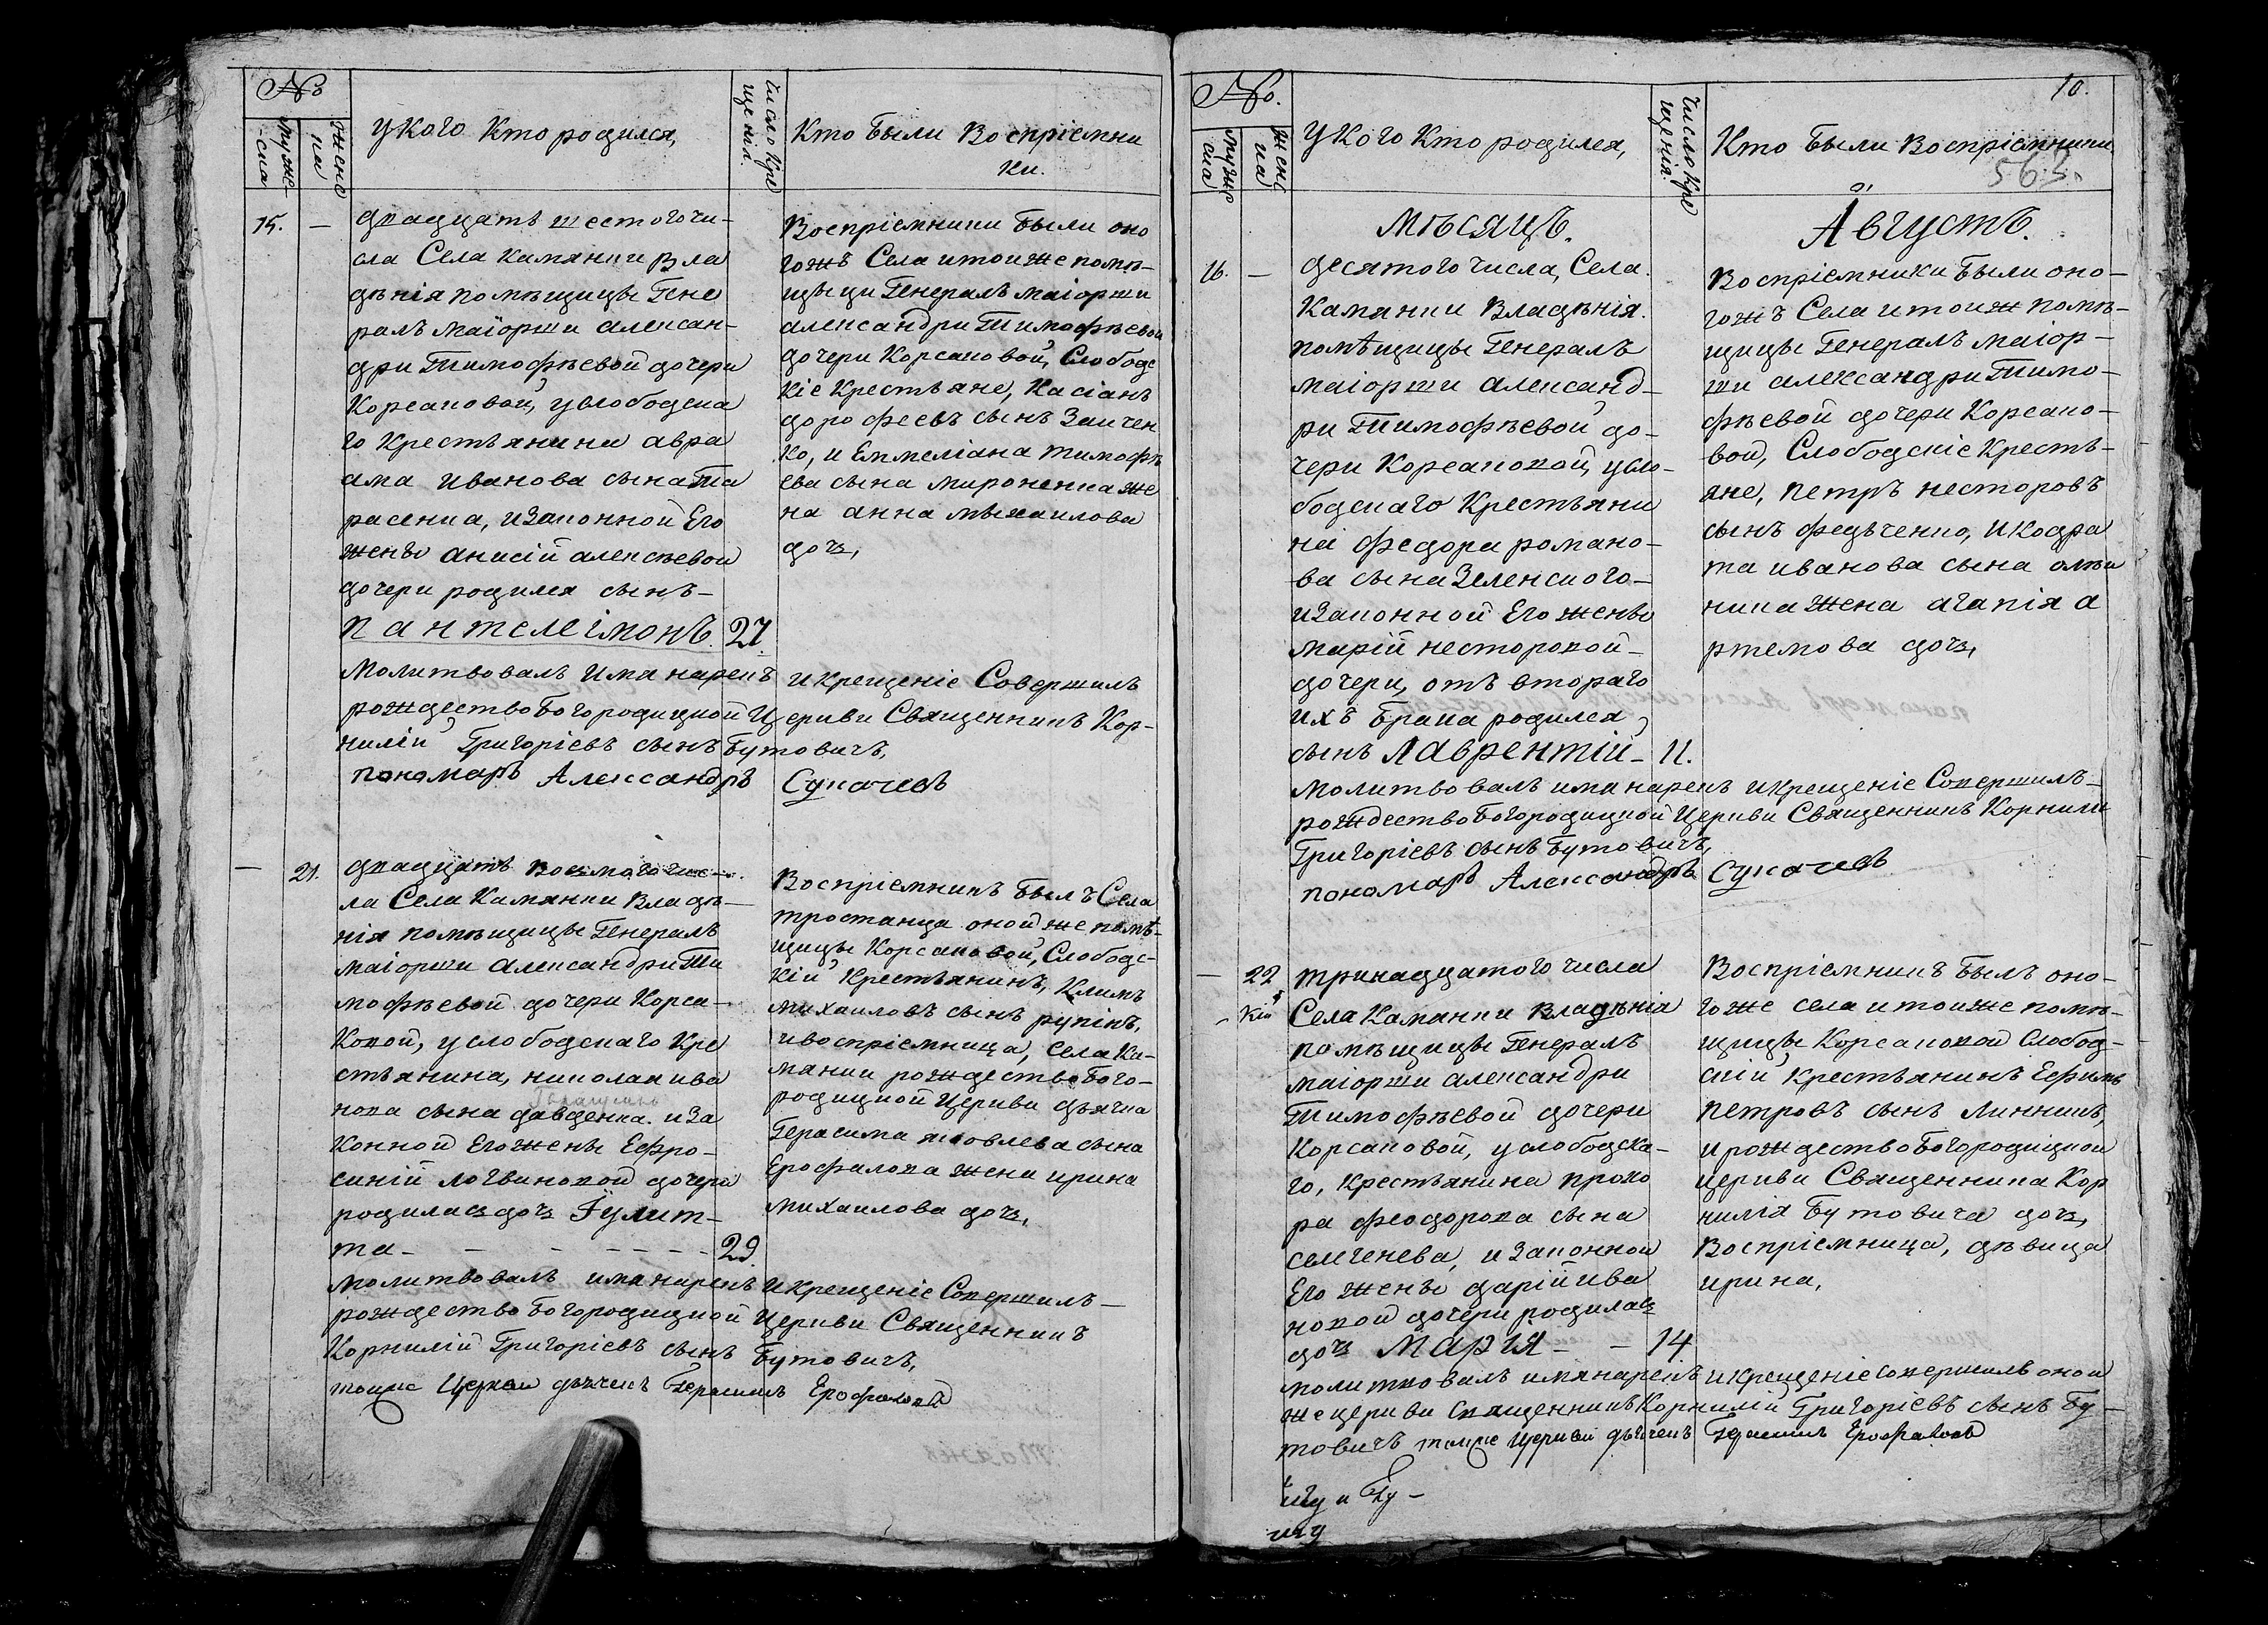 №
мужеска
женска
у кого кто родился,
число крещенiя.
Кто были Воспрiемни
ки.
15.
—
двадцать шестого чи-
сла Села Камянки Вла
дѣнiя помѣщицы Гене
ралъ маiорши алексан-
дри Тимофѣевой дочери
Корсаковой, у слободска
го Крестьянина авра
ама иванова сына Та
расенка, и законной Его
жены анисiй алексѣевой
дочери родился сынъ-
пантелеiмонъ. 27.
Воспрiемники были оно
гожъ Села и тоижe помѣ-
щици Генералъ маiорши
александри Тимофѣевой
дочери Корсаковой, Слободс
кiе Крестьяне, Касiанъ
дорофеевъ сынъ Заичен
ко, и Еммелiана тимофѣ
ева сына мироненка же
на анна михаилова
дочь,
Молитвовалъ имя нарекъ и крещенiе Совершилъ
рождество Богородицкой Церкви Священникъ Кор-
нилiй Григорiевъ сынъ Бутовичъ,
пономарь Александръ Сукачевъ
—
21.
двадцать восмого чис-
ла Села Камянки Владѣ-
нiя помѣщицы Генералъ
маiорши александри Ти
мофѣевой дочери Корса-
ковой, у слободскаго Кре
стьянина, николая ива
нова сына давденка. и за
конной Его жены Ефро-
синiй логвиновой дочери
родилась дочь Iулит-
та - - - - - - - 29.
Воспрiемникъ былъ Села
тростанца оной же помѣ-
щицы Корсаковой, Слободс-
кiй Крестьянинъ, Климъ
михаиловъ сынъ рупiкъ,
и воспрiемница, села Ка-
мянки рождество Бого-
родицкой Церкви дьячка
Герасима яковлева сына
Ерофалова жена ирина
михаилова дочь,
молитвовалъ имя нарекъ и крещенiе Совершилъ-
рождество Богородицкой Церкви Священникъ
Корнилiй Григорiевъ сынъ Бутовичъ,
тоиже Церкви дьячекъ Герасимъ Ерофаловъ
10.
563.
№.
мужеска
женска
у кого кто родился,
число крещенiя.
Кто были Воспрiемники
мѣсяцъ.
Августъ.
16.
—
десятого числа, Села
Камянки Владѣнiя.
помѣщицы Генералъ
маiорши александ-
ри Тимофѣевой до-
чери Корсаковой, у сло-
бодскаго Крестьяни
на федора романо-
ва сына Зеленского-
и законной Его жены
марiй несторовой-
дочери, отъ второго
ихъ брака родился
сынъ Лаврентiй- 11.
Воспрiемники были оно-
гожъ Села и тоиж помѣ-
щицы Генералъ маiор-
ши александри Тимо-
фѣевой дочери Корсако-
вой, Слободскiе Кресть-
яне, петръ несторовъ
сынъ федьченко, и Кодра
та иванова сына олѣи
ника жена агапiя а
ртемова дочь,
молитвовалъ имя нарекъ и крещенiе Совершилъ-
рождество Богородицкой Церкви Священникъ Корнили
Григорiевъ сынъ Бутовичъ,
пономарь Александръ Сукачевъ
—
22
тринадцатого числа
Села Камянки Владѣнiя
помѣщицы Генералъ
маiорши александри
Тимофѣевой дочери
Корсаковой, у слободска-
го, крестьянина прохо
ра феодорова сына
семченева, и законной
Его жены дарiй ива
новой дочери родилась
дочь Марiя - - 14
Воспрiемникъ былъ оно-
гоже села и тоиже помѣ-
щицы Корсаковой Слобод-
скiй крестьянинъ Ефимъ
петровъ сынъ линникъ,
и рождество Богородицкой
церкви Священника Кор
нилiя Бутовича дочь,
воспрiемница, дѣвица
ирина,
молитвовалъ имя нарекъ и крещенiе совершилъ оной
же церкви священникъ Корнилiй Григорiевъ сынъ Бу-
товичъ тоиже Церкви дьячекъ Герасимъ Ерофаловъ